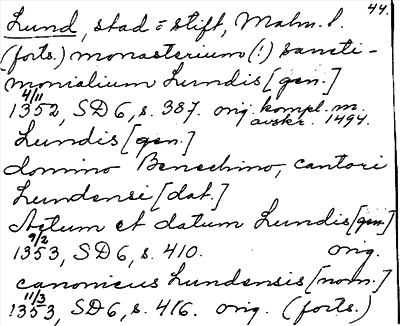 44.
Lund, stad = stift, Malm. l.
(forts.) monasterium (!) sancti-
monialium Lundis [gen.]
4/11
1352, SD 6, s. 387. orig. kompl. m. avskr. 1494.
Lundis [gen.]
domino Benechino, cantori
Lundensi [dat.]
Actum et datum Lundis [gen.]
9/2
1353, SD 6, s. 410. orig.
canonicus Lundensis [nom.]
11/3
1353, SD 6, s. 416. orig. (forts.)